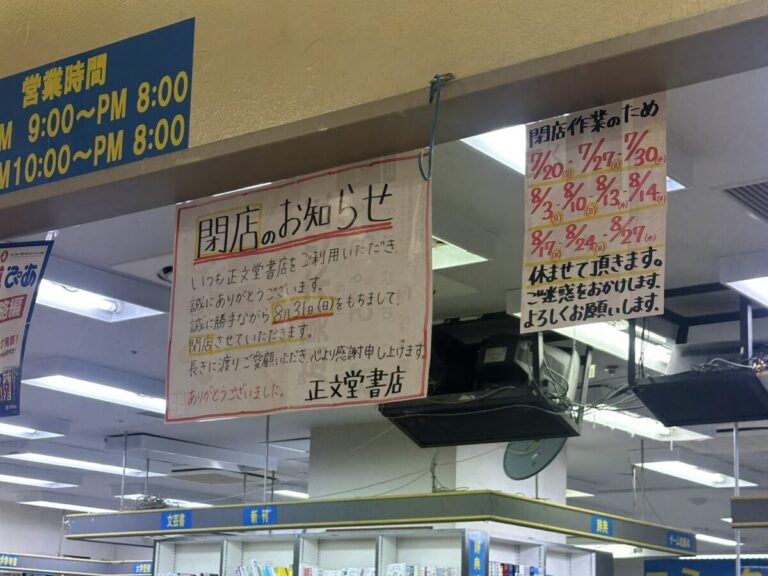 営業時間
AM 9:00～PM 8:00
AM10:00～PM 8:00
ぴあ
閉店のお知らせ
いつも正文堂書店をご利用いただき、
誠にありがとうございます。
誠に勝手ながら8月31日(日)をもちまして
閉店させていただきます。
長きに渡りご愛顧いただき心より感謝申し上げます。
ありがとうございました。 正文堂書店
閉店作業のため
7/20(日)・7/27(日)・7/30(水)
8/3(日)・8/10(日)・8/13(水)・8/14(木)
8/17(日)・8/24(日)・8/27(水)
休ませて頂きます。
ご迷惑をおかけします。
よろしくお願いします。
文芸書
新刊
辞典
ゲーム攻略本
辞典